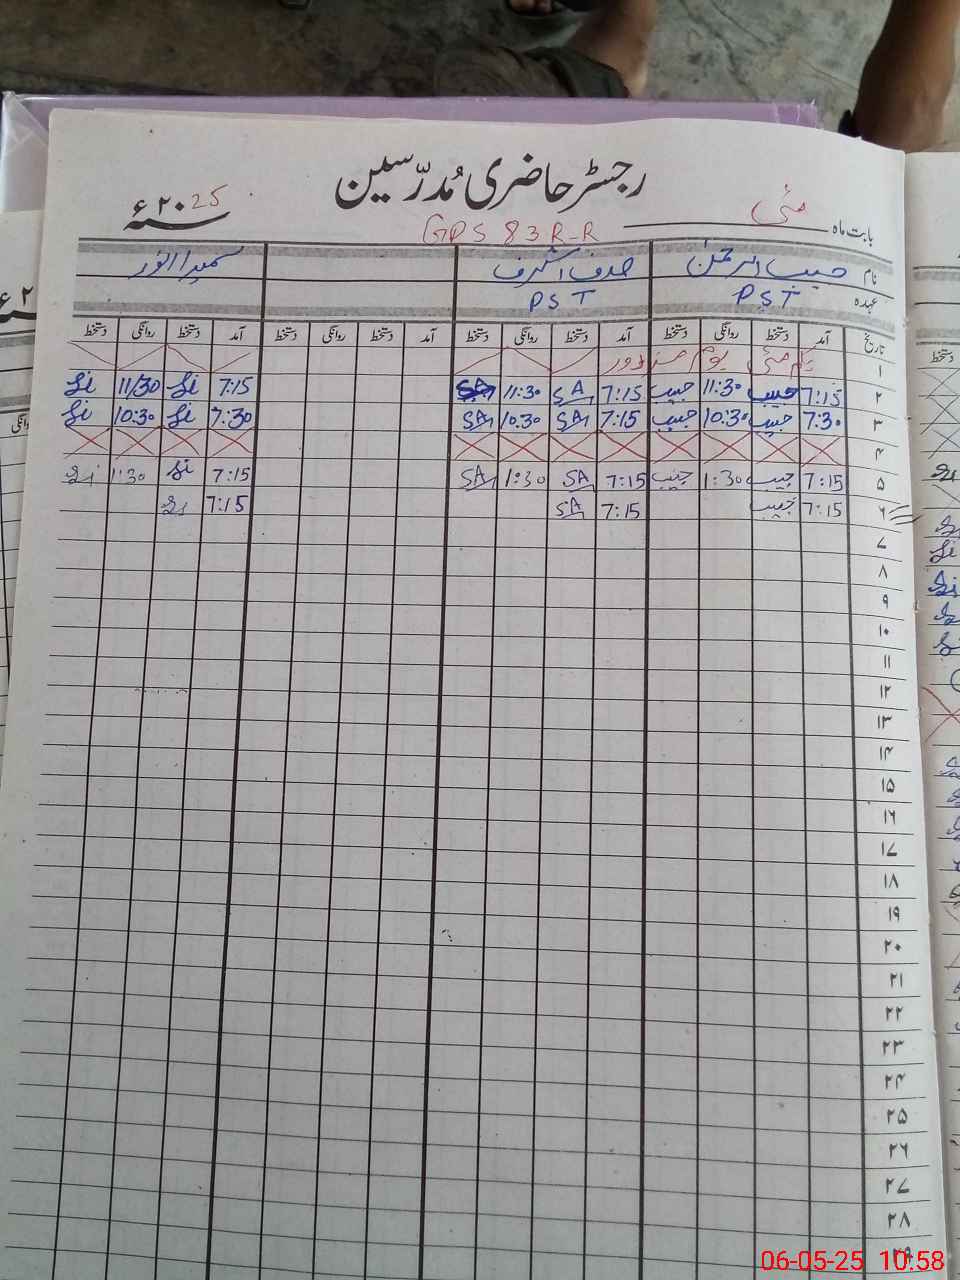 رجسٹر حاضری مُدرّسین
بابت ماہ مئی GPS 83 R-R ۲۰25ء
نام حبیب الرحمٰن صدف اشرف سمیرا انور
عہدہ PST PST
تاریخ آمد دستخط روانگی دستخط آمد دستخط روانگی دستخط آمد دستخط روانگی دستخط آمد دستخط روانگی دستخط
۱ یکم مئی یوم مزدور
۲ 7:15 حبیب 11:30 حبیب 7:15 SA 11:30 SA 7:15 11/30
۳ 7:30 حبیب 10:30 حبیب 7:15 SA 10:30 SA 7:30 10:30
۴
۵ 7:15 حبیب 1:30 حبیب 7:15 SA 1:30 SA 7:15 1:30
۶ 7:15 حبیب 7:15 SA 7:15
۷
۸
۹
۱۰
۱۱
۱۲
۱۳
۱۴
۱۵
۱۶
۱۷
۱۸
۱۹
۲۰
۲۱
۲۲
۲۳
۲۴
۲۵
۲۶
۲۷
۲۸
۲۹
06-05-25 10:58